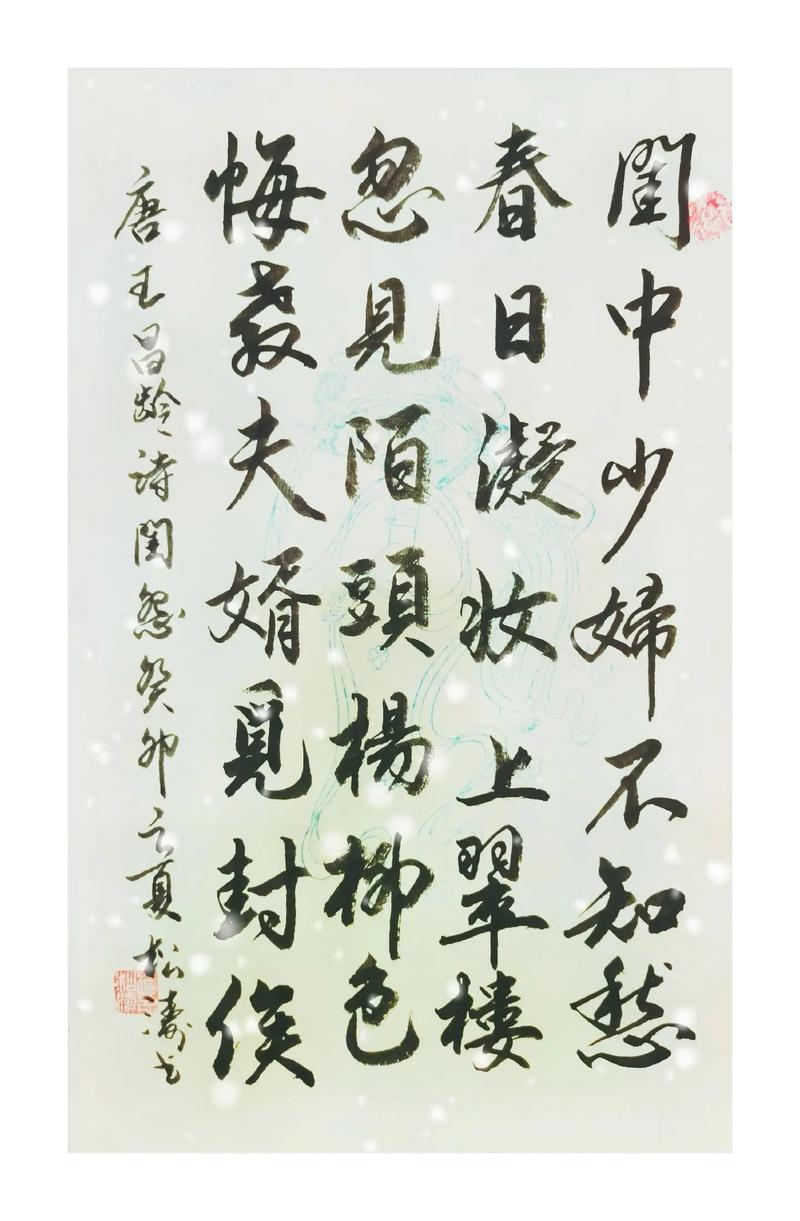 閨中少婦不知愁
春日凝妝上翠樓
忽見陌頭楊柳色
悔教夫婿覓封侯
唐王昌龄诗閨怨癸卯之夏松涛书